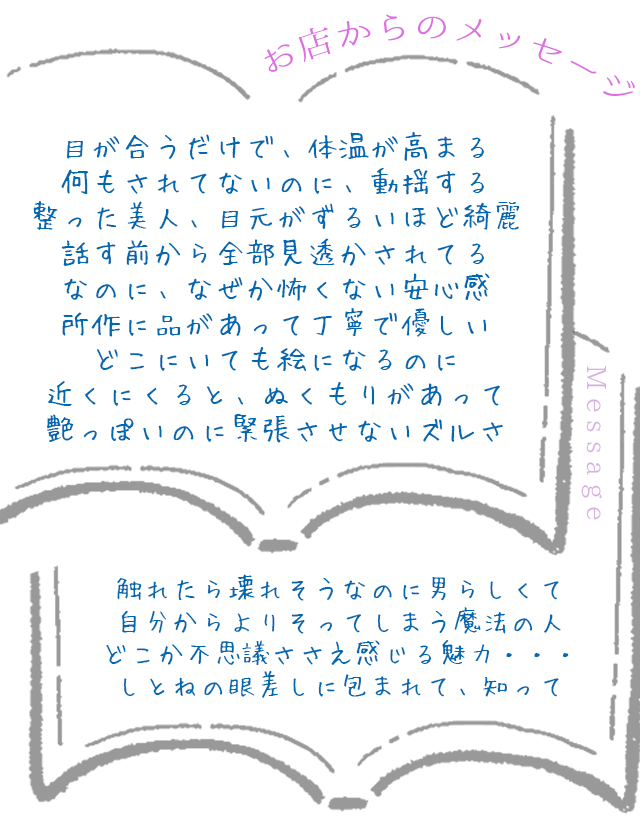 お店からのメッセージ
目が合うだけで、体温が高まる
何もされてないのに、動揺する
整った美人、目元がずるいほど綺麗
話す前から全部見透かされてる
なのに、なぜか怖くない安心感
所作に品があって丁寧で優しい
どこにいても絵になるのに
近くにくると、ぬくもりがあって
艶っぽいのに緊張させないズルさ
Message
触れたら壊れそうなのに男らしくて
自分からよりそってしまう魔法の人
どこか不思議ささえ感じる魅力・・・
しとねの眼差しに包まれて、知って